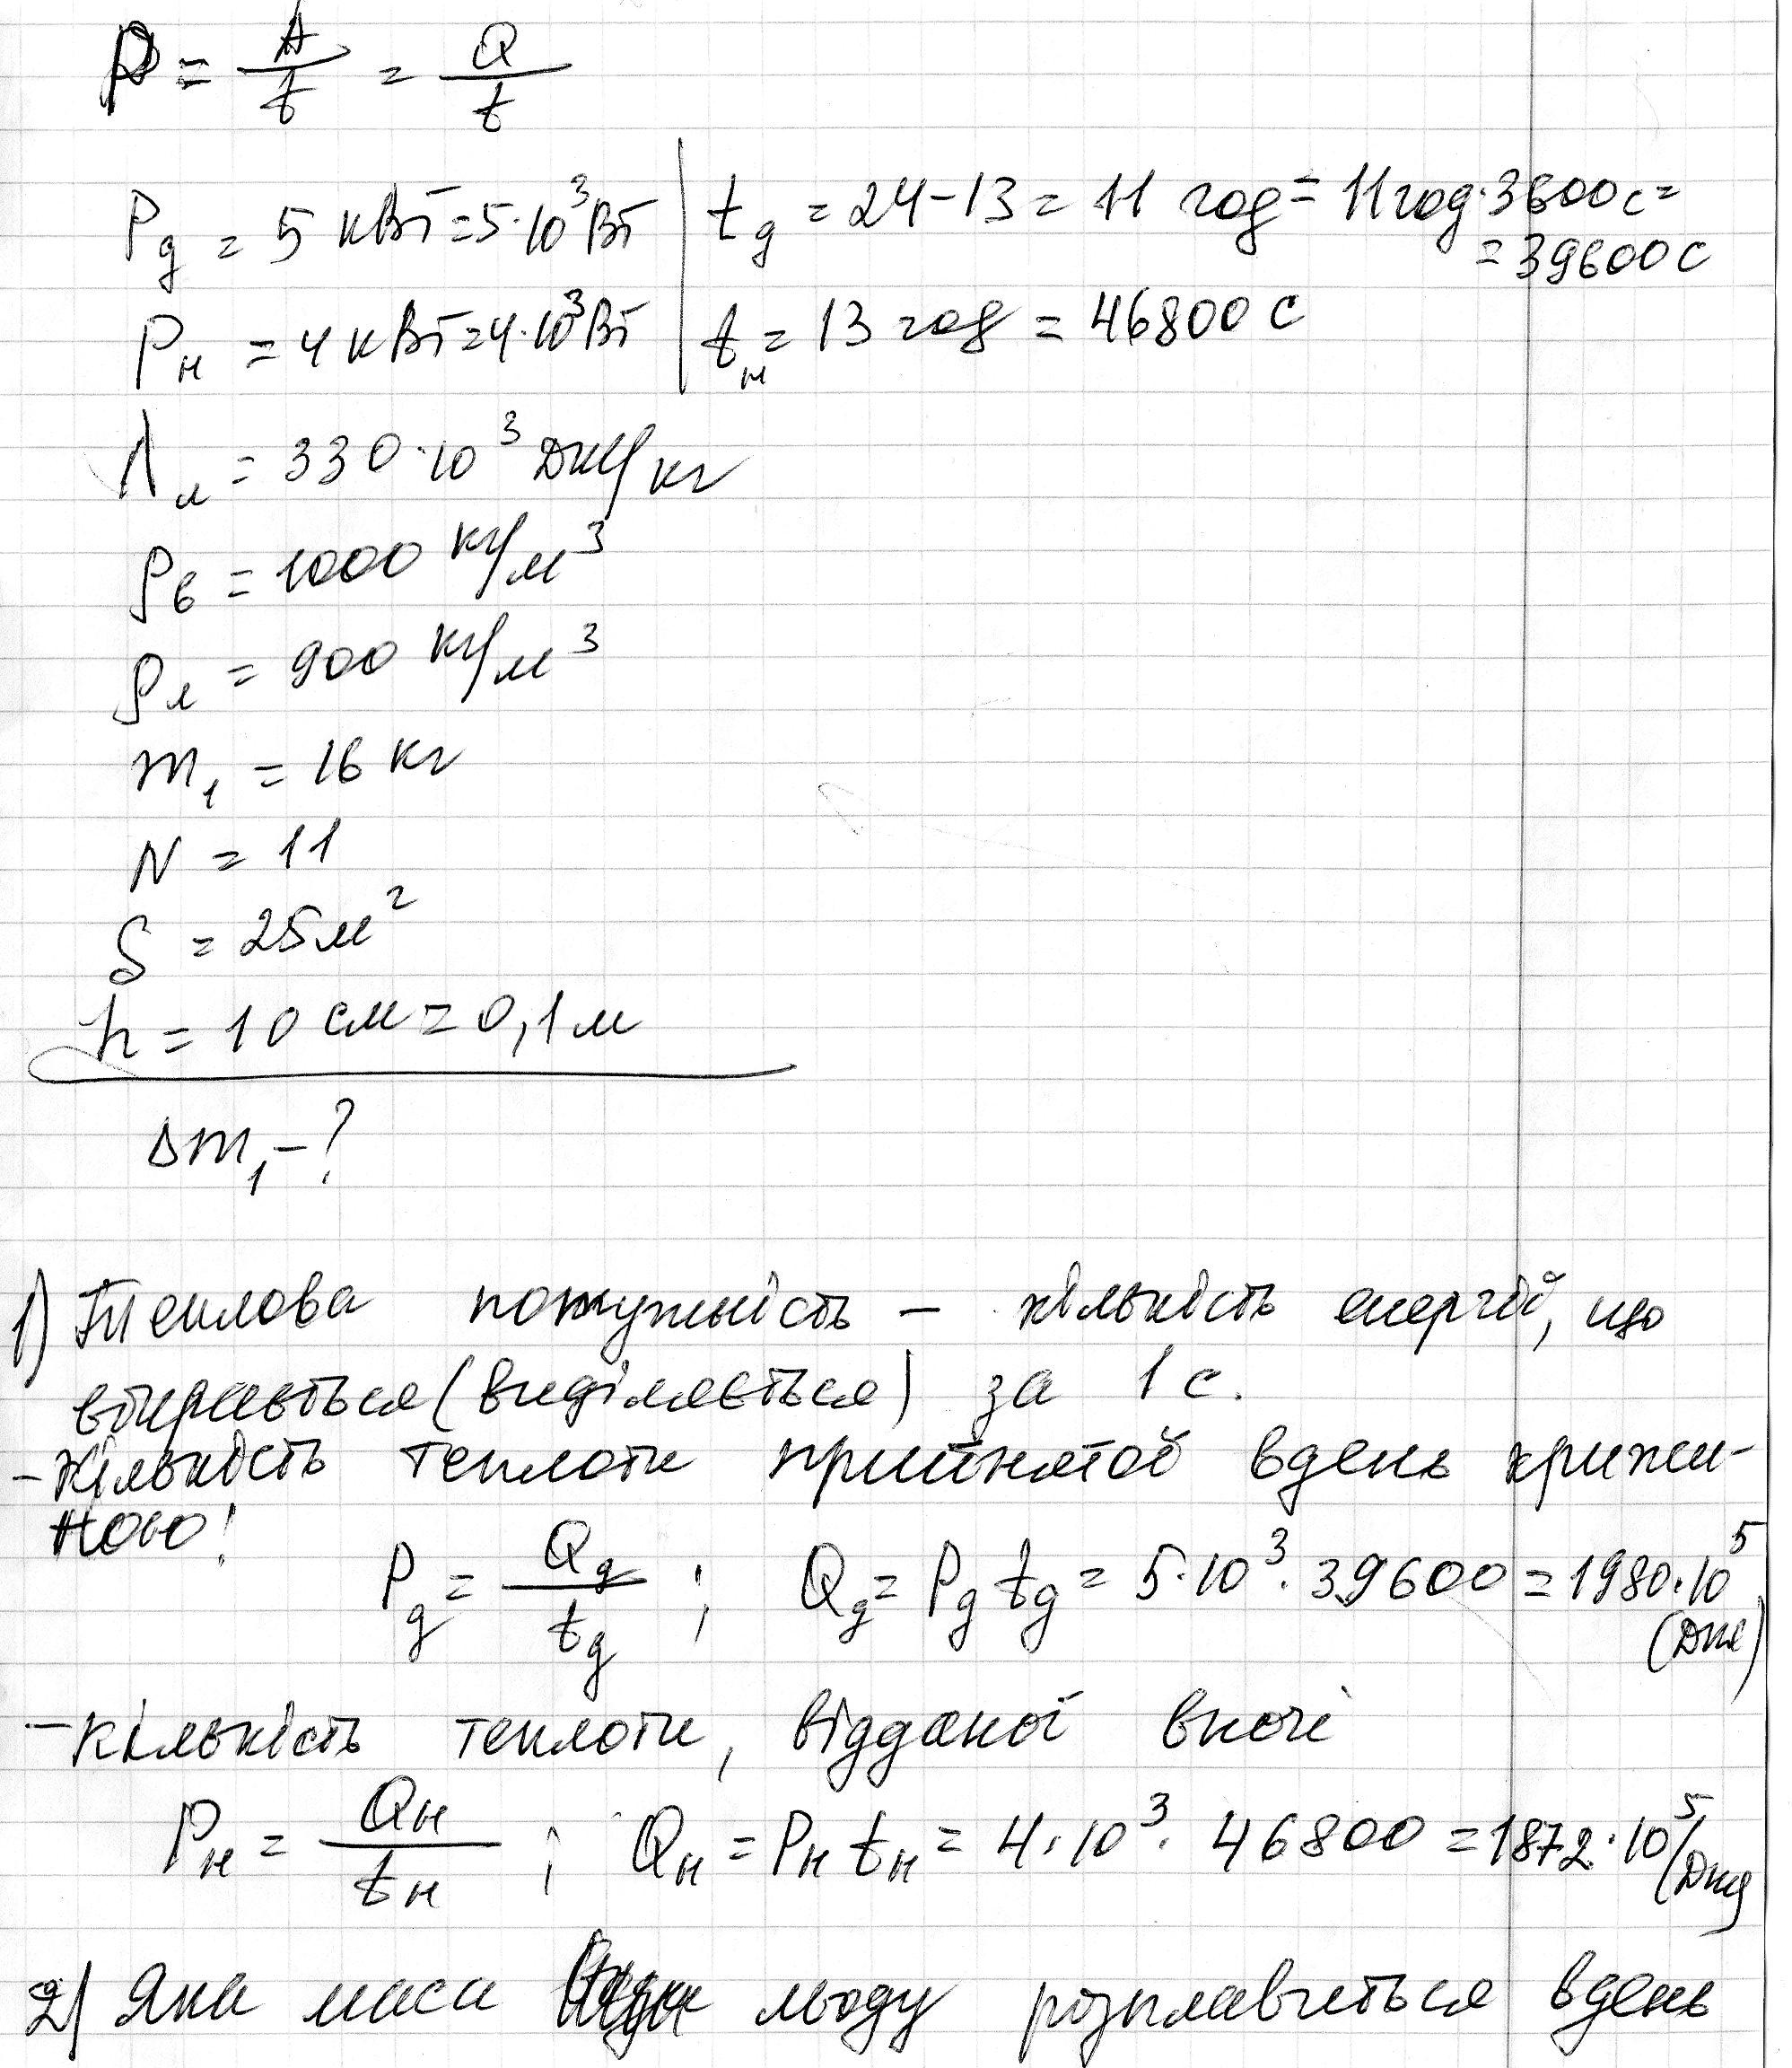 P = A/t = Q/t
Pд = 5 кВт = 5·10³ Вт | tд = 24 - 13 = 11 год = 11 год·3600 с =
= 39600 с
Pн = 4 кВт = 4·10³ Вт | tн = 13 год = 46800 с
λл = 330·10³ Дж/кг
ρв = 1000 кг/м³
ρл = 900 кг/м³
m₁ = 16 кг
N = 11
S = 25 м²
h = 10 см = 0,1 м
Δm₁ - ?
1) Теплова потужність – кількість енергії, що
втрачається (виділяється) за 1 с.
- Кількість теплоти прийнятої вдень крижи-
ною!
Pд = Qд/tд ; Qд = Pд tд = 5·10³·39600 = 1980·10⁵
(Дж)
- Кількість теплоти, відданої вночі
Pн = Qн/tн ; Qн = Pн tн = 4·10³·46800 = 1872·10⁵ (Дж)
2) Яка маса льоду розплавиться вдень